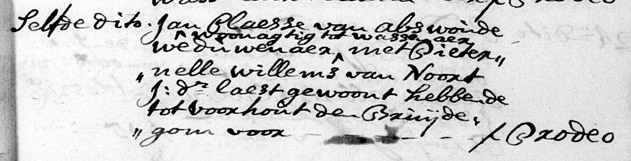 Selfde dito. Jan Claesse van abswoude
woonagtig tot wassenaer
weduwenaer, met Pieter„
„nelle willems van Noort
J: dr: laest gewoont hebbende
tot voorhout de Bruijde„
„gom voor - - - / Prodeo